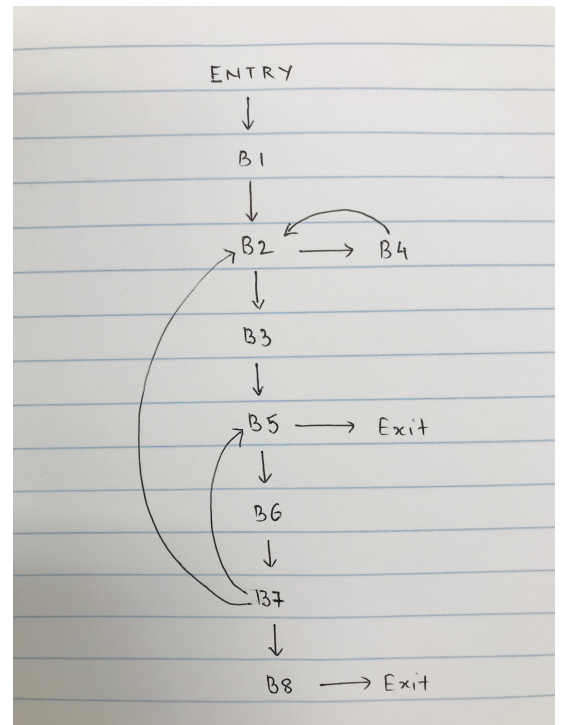 ENTRY
B1
B2 B4
B3
B5 Exit
B6
B7
B8 Exit